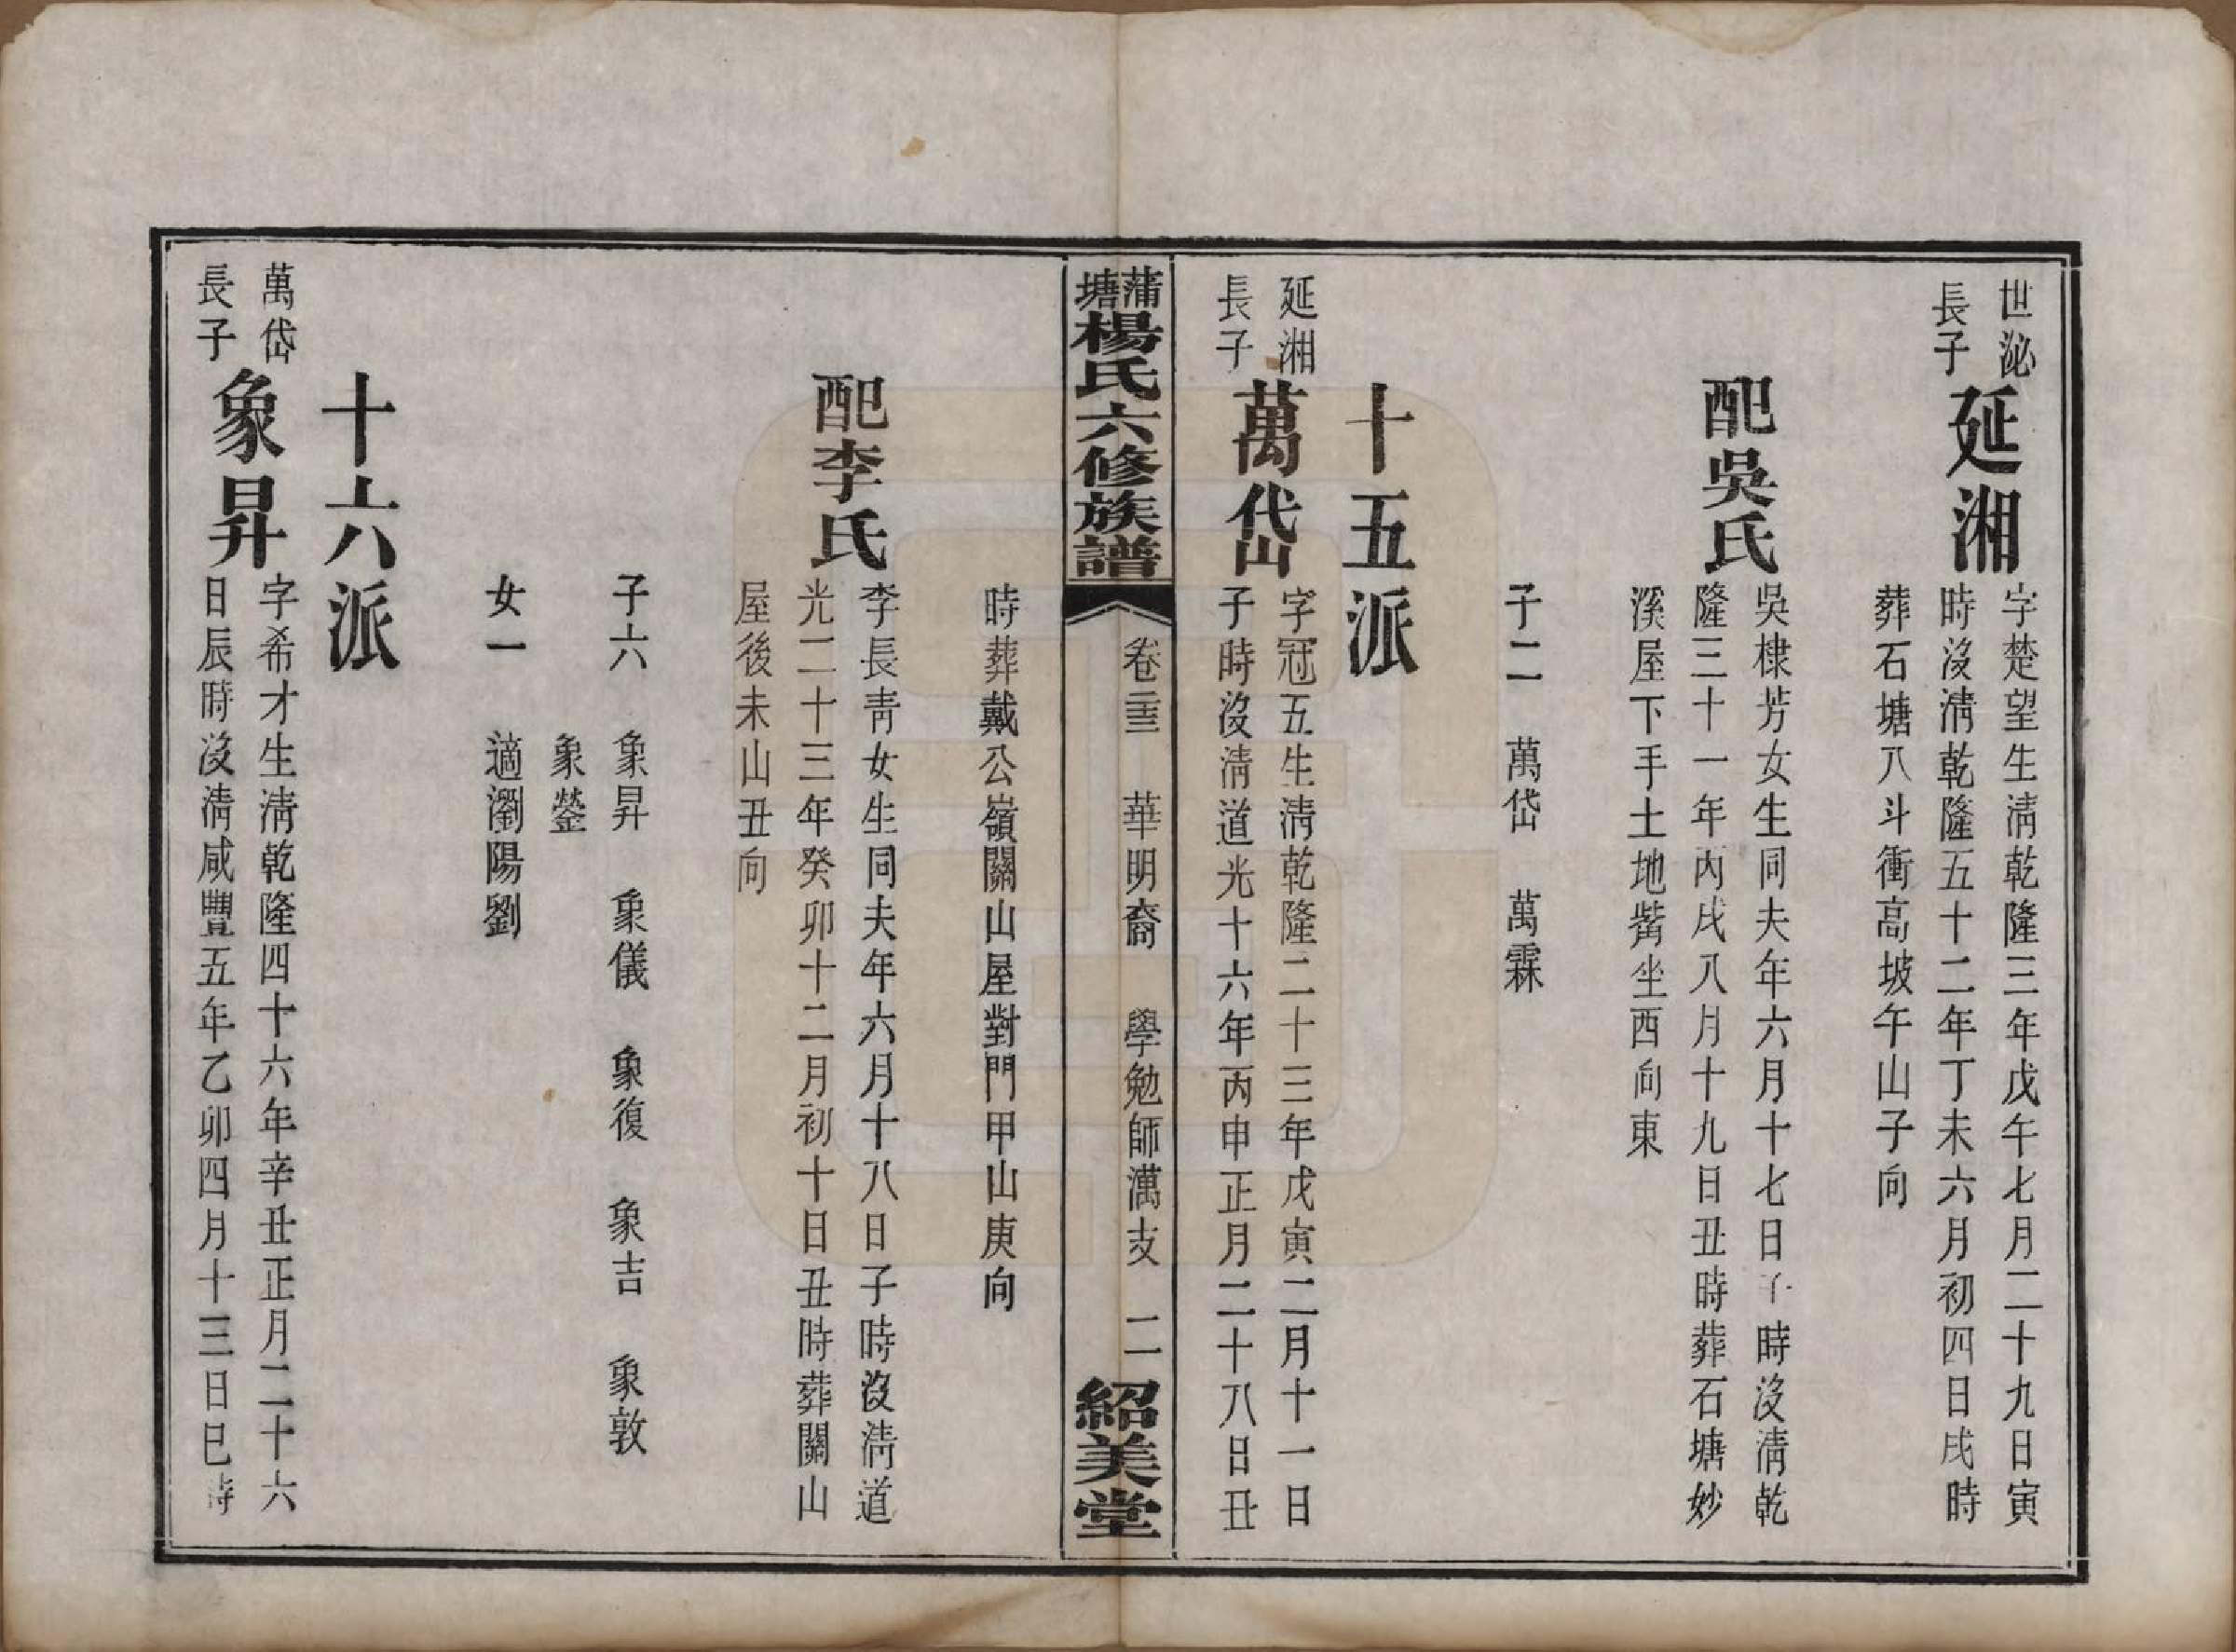 世泌
長子
延湘
字楚望生淸乾隆三年戊午七月二十九日寅
時沒淸乾隆五十二年丁未六月初四日戌時
葬石塘八斗衝高坡午山子向
配吳氏
吳棣芳女生同夫年六月十七日子時沒淸乾
隆三十一年丙戌八月十九日丑時葬石塘妙
溪屋下手土地觜坐西向東
子二　萬岱　萬霖
十五派
延湘
長子
萬岱
字冠五生淸乾隆二十三年戊寅二月十一日
子時沒淸道光十六年丙申正月二十八日丑
蒲塘楊氏六修族譜
卷三　華明裔　學勉師萬支　二
紹美堂
時葬戴公嶺關山屋對門甲山庚向
配李氏
李長靑女生同夫年六月十八日子時沒淸道
光二十三年癸卯十二月初十日丑時葬關山
屋後未山丑向
子六　象昇　象儀　象復　象吉　象敦
象鎣
女一　適瀏陽劉
十六派
萬岱
長子
象昇
字希才生淸乾隆四十六年辛丑正月二十六
日辰時沒淸咸豐五年乙卯四月十三日巳時